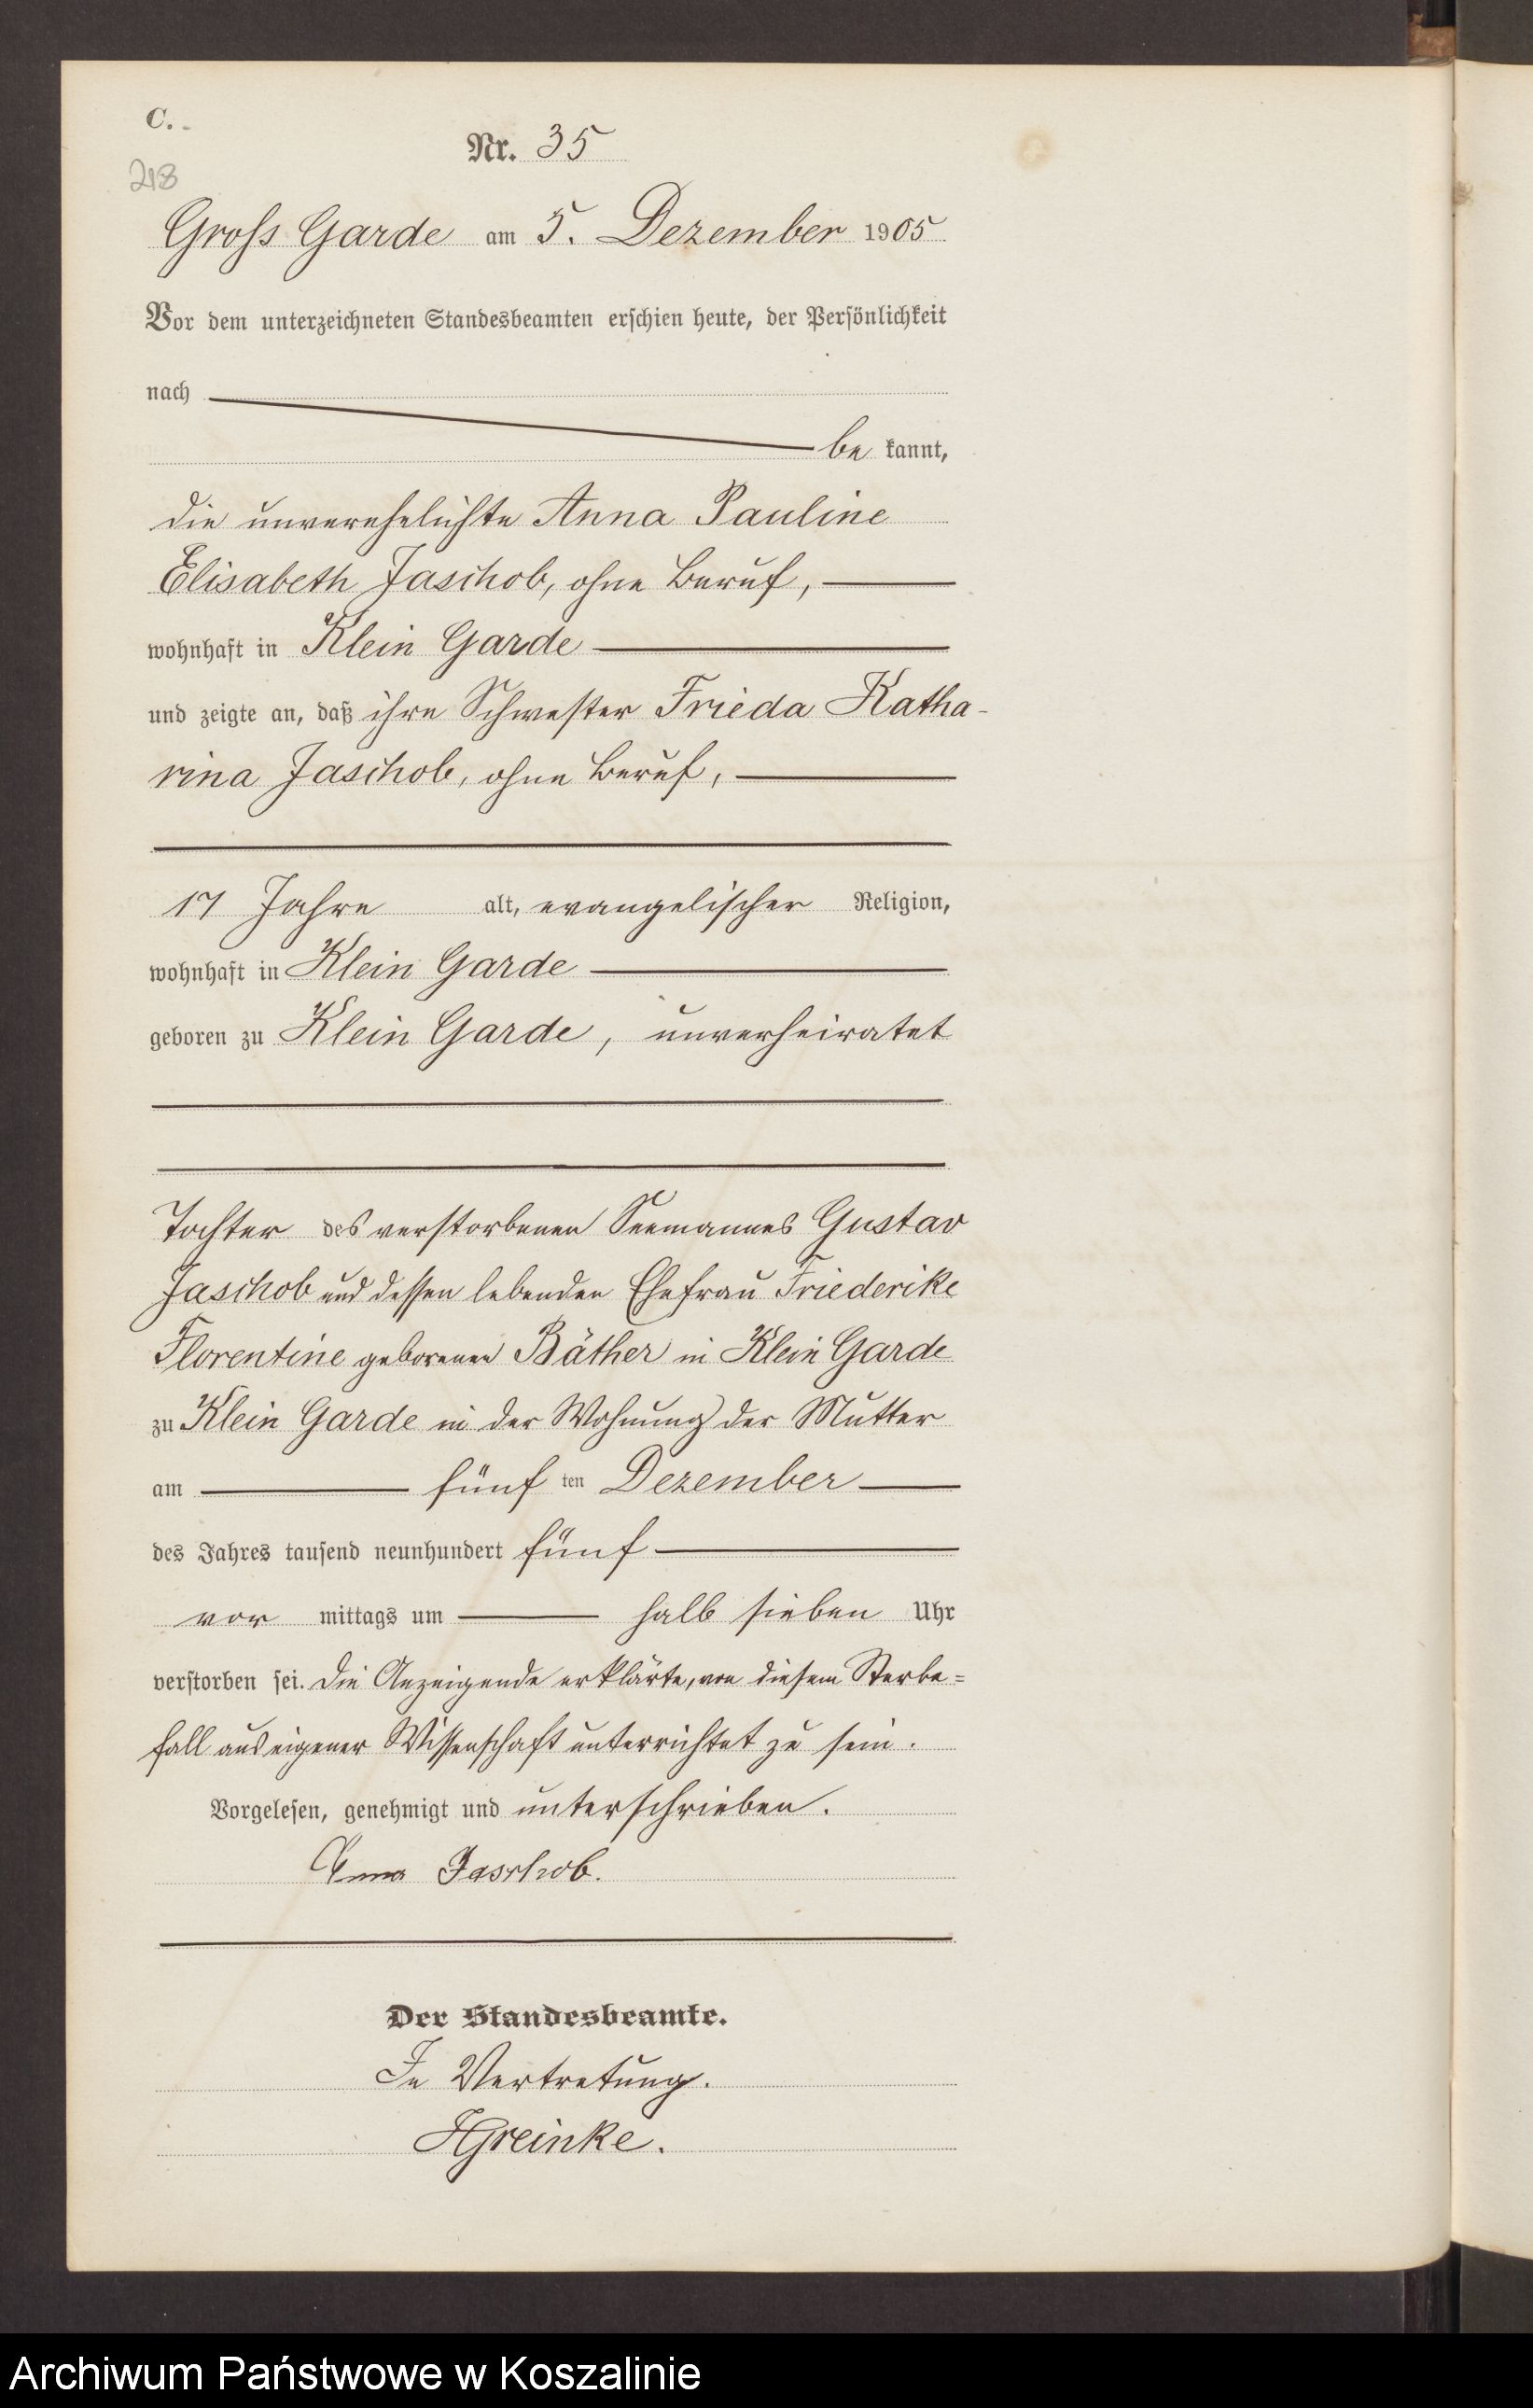 C.
Nr. 35
218
Gross Garde am 5. Dezember 1905
Vor dem unterzeichneten Standesbeamten erschien heute, der Persönlichkeit
nach
be kannt,
die unverehelichte Anna Pauline
Elisabeth Jaschob, ohne Beruf,
wohnhaft in Klein Garde
und zeigte an, daß ihre Schwester Frieda Katha-
rina Jaschob, ohne Beruf,
17 Jahre alt, evangelischer Religion,
wohnhaft in Klein Garde
geboren zu Klein Garde, unverheiratet
Tochter des verstorbenen Seemannes Gustav
Jaschob und dessen lebenden Ehefrau Friederike
Florentine geborenen Bäther in Klein Garde
zu Klein Garde in der Wohnung der Mutter
am fünf ten Dezember
des Jahres tausend neunhundert fünf
vor mittags um halb sieben Uhr
verstorben sei. Die Anzeigende erklärte, von diesem Sterbe=
fall aus eigener Wissenschaft unterrichtet zu sein.
Vorgelesen, genehmigt und unterschrieben.
Anna Jaschob.
Der Standesbeamte.
In Vertretung.
HGreinke.
Archiwum Państwowe w Koszalinie